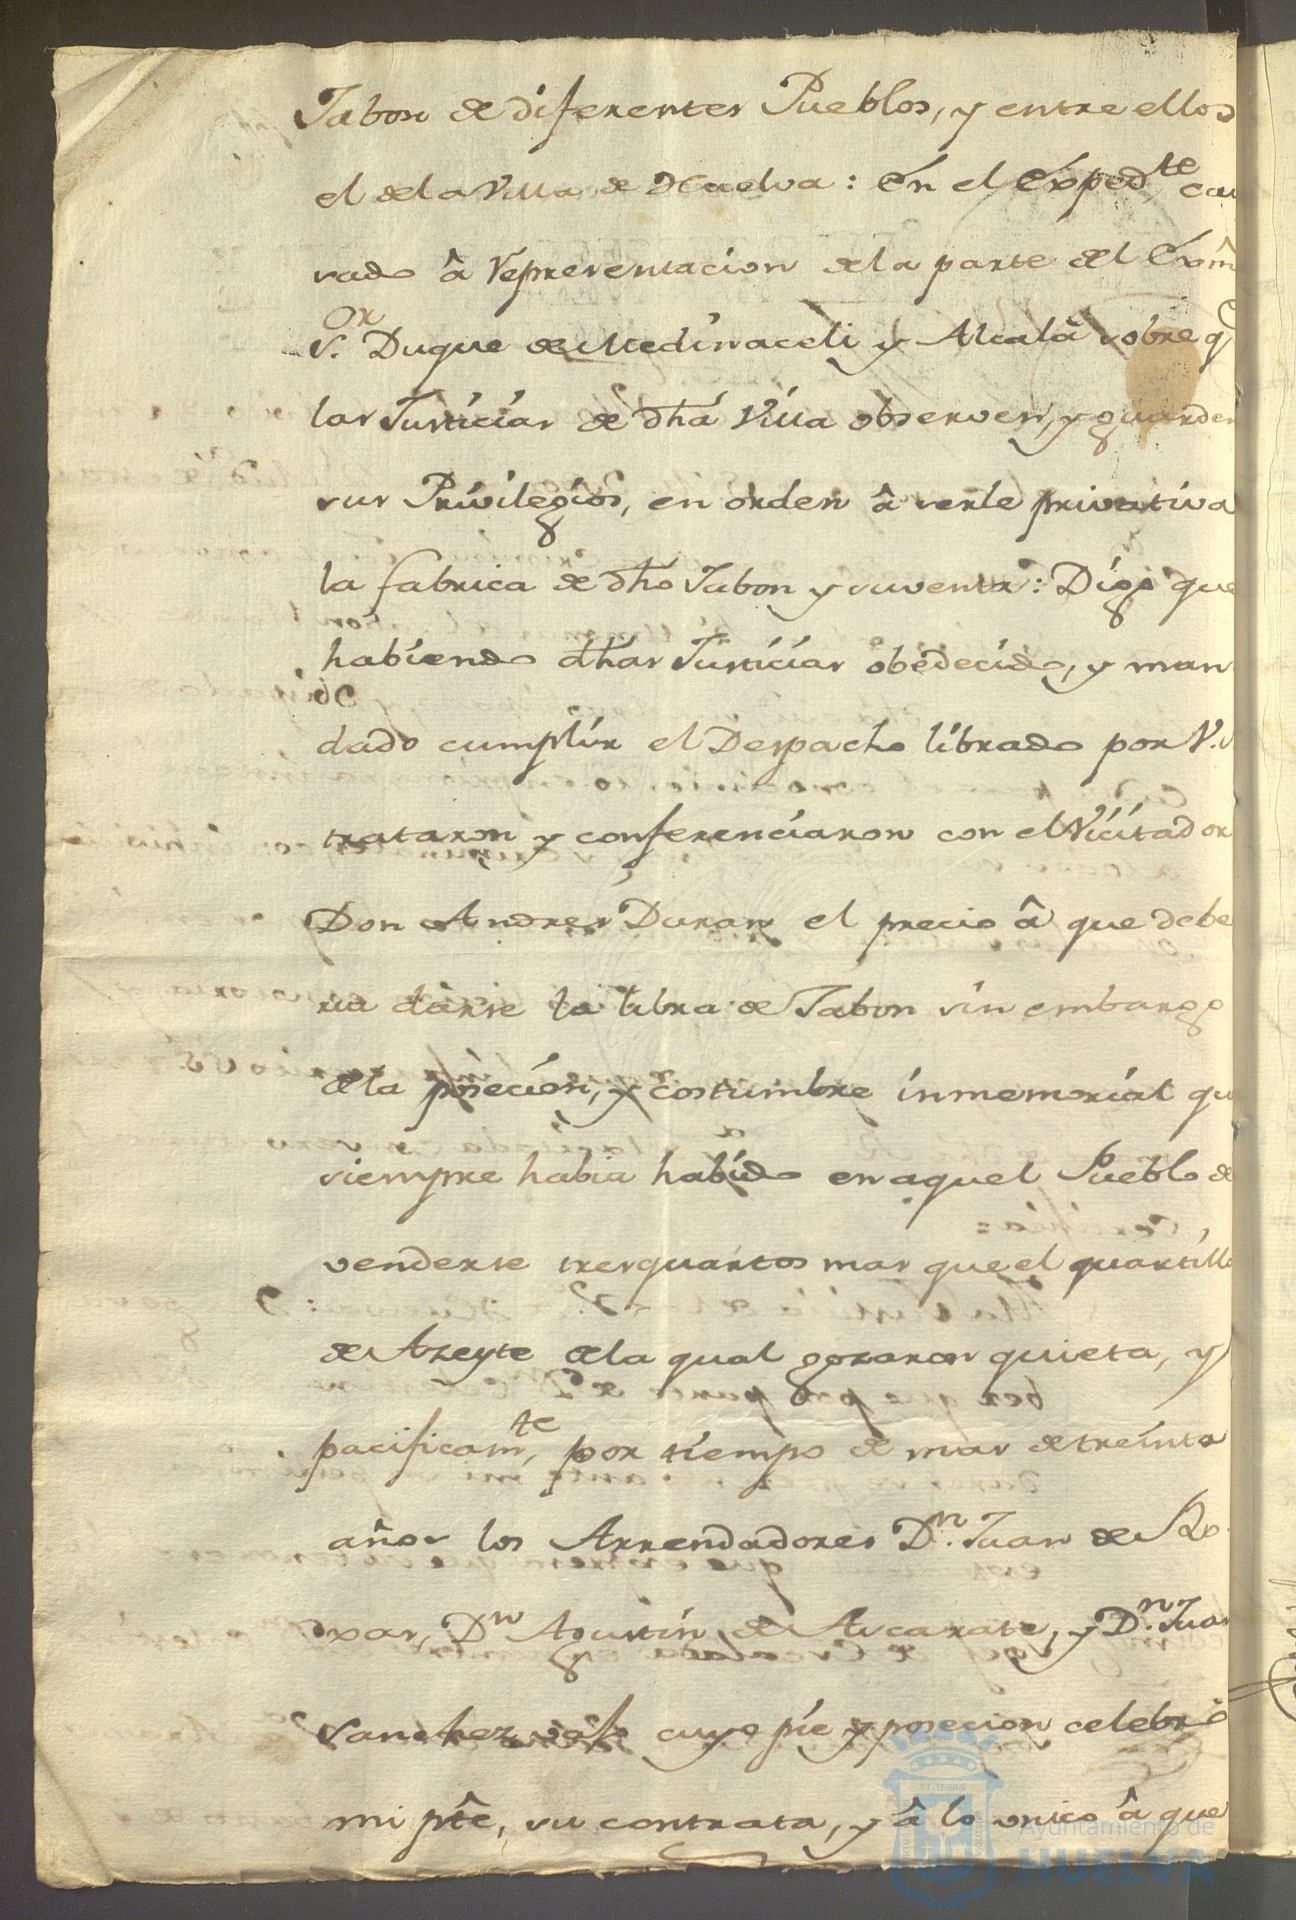 Jabon de diferentes Pueblos, y entre ellos
el de la Villa de Huelva: En el Expedte cau
sado â representacion de la parte del Exmô
Sor. Duque de Medinaceli y Alcalâ sobre q
las Justicias de dha Villa observen, y guarden
sus Privilegios, en orden â serle privativa
la fabrica de dho Jabon y su venta: Digo que
habiendo dhas Justicias obedecido, y man
dado cumplir el Despacho librado por V.S
trataron y conferenciaron con el Vicitador
Don Andres Duran el precio â que debe
ria darse la libra de Jabon sin embargo
de la posecion, y costumbre inmemorial qu
siempre habia habido en aquel Pueblo de
venderse tres quartos mas que el quartillo
de Azeyte de la qual gozaron quieta, y
pacificamte, por tiempo de mas de treinta
años los Arrendadores Dn. Juan de Ro
xas, Dn Agustin de Ascarate, y Dn. Juan
Sanchez bajo cuyo pie y posecion celebrò
mi pte, su contrata, y â lo unico â que
Ayuntamiento de
HUELVA